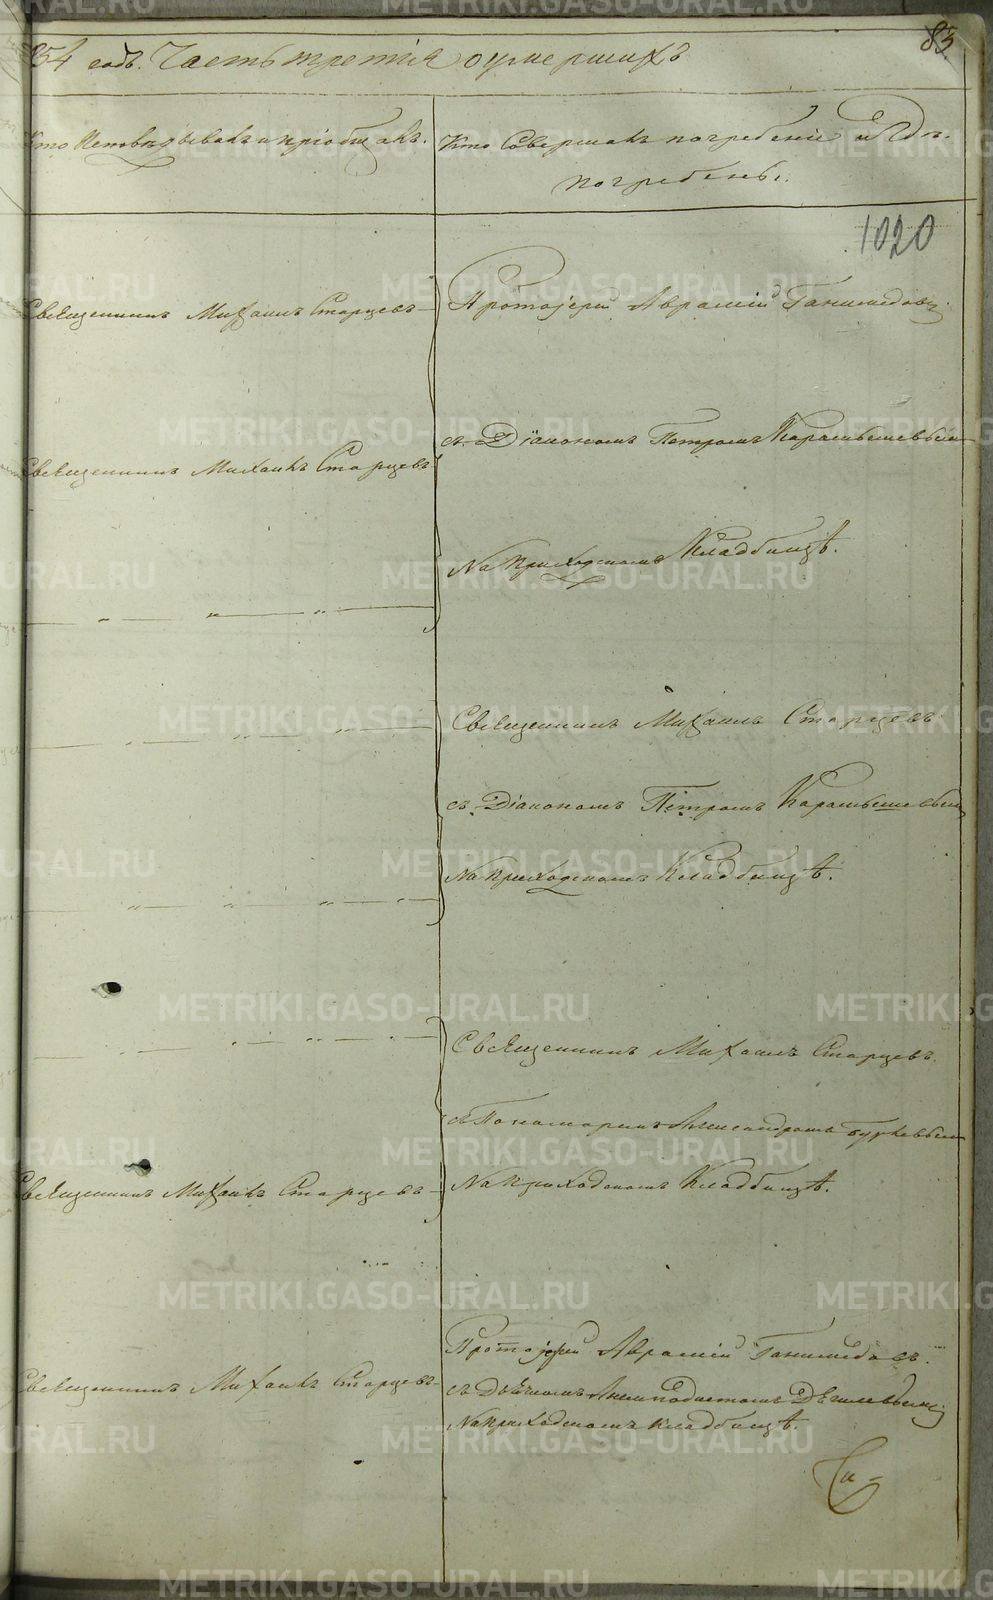 83
854 годъ. Часть третія о умершихъ
Кто исповѣдывалъ и пріобщалъ.
Кто совершалъ погребеніе и гдѣ
погребены.
1020
Священникъ Михаилъ Старцевъ
Протоіерей Аврамій Ганимедовъ
съ Діакономъ Петромъ Карамышевымъ
Священникъ Михаилъ Старцевъ
На приходскомъ кладбищѣ.
Священникъ Михаилъ Старцевъ
съ Діакономъ Петромъ Карамышевымъ
На приходскомъ кладбищѣ.
Священникъ Михаилъ Старцевъ
съ Пономаремъ Александромъ
На приходскомъ кладбищѣ.
Священникъ Михаилъ Старцевъ
Протоіерей Аврамій Ганимедовъ
Священникъ Михаилъ Старцевъ
съ Дьячкомъ
На приходскомъ кладбищѣ.
METRIKI.GASO-URAL.RU